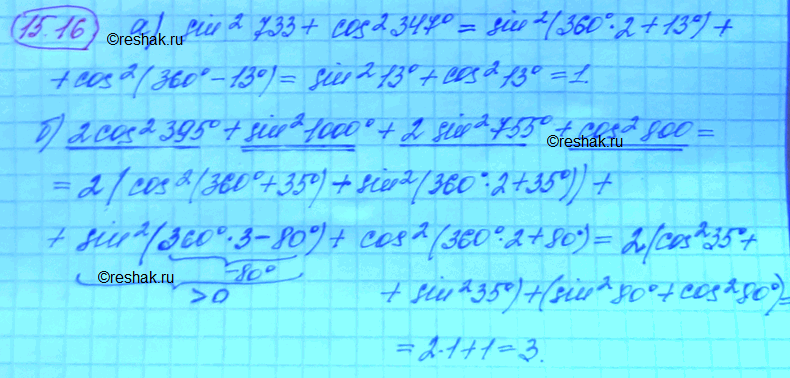 15.16 а) sin² 733 + cos² 347° = sin²(360°·2+13°) +
+ cos²(360°-13°) = sin²13° + cos²13° = 1.
©reshak.ru
б) 2cos² 395° + sin² 1000° + 2 sin² 755° + cos² 800 =
©reshak.ru
©reshak.ru
= 2(cos²(360°+35°) + sin²(360°·2+35°)) +
+ sin²(360°·3-80°) + cos²(360°·2+80°) = 2(cos²35°+
-80°
©reshak.ru
>0
+ sin²35°) + (sin²80° + cos²80°) =
= 2·1+1 = 3.